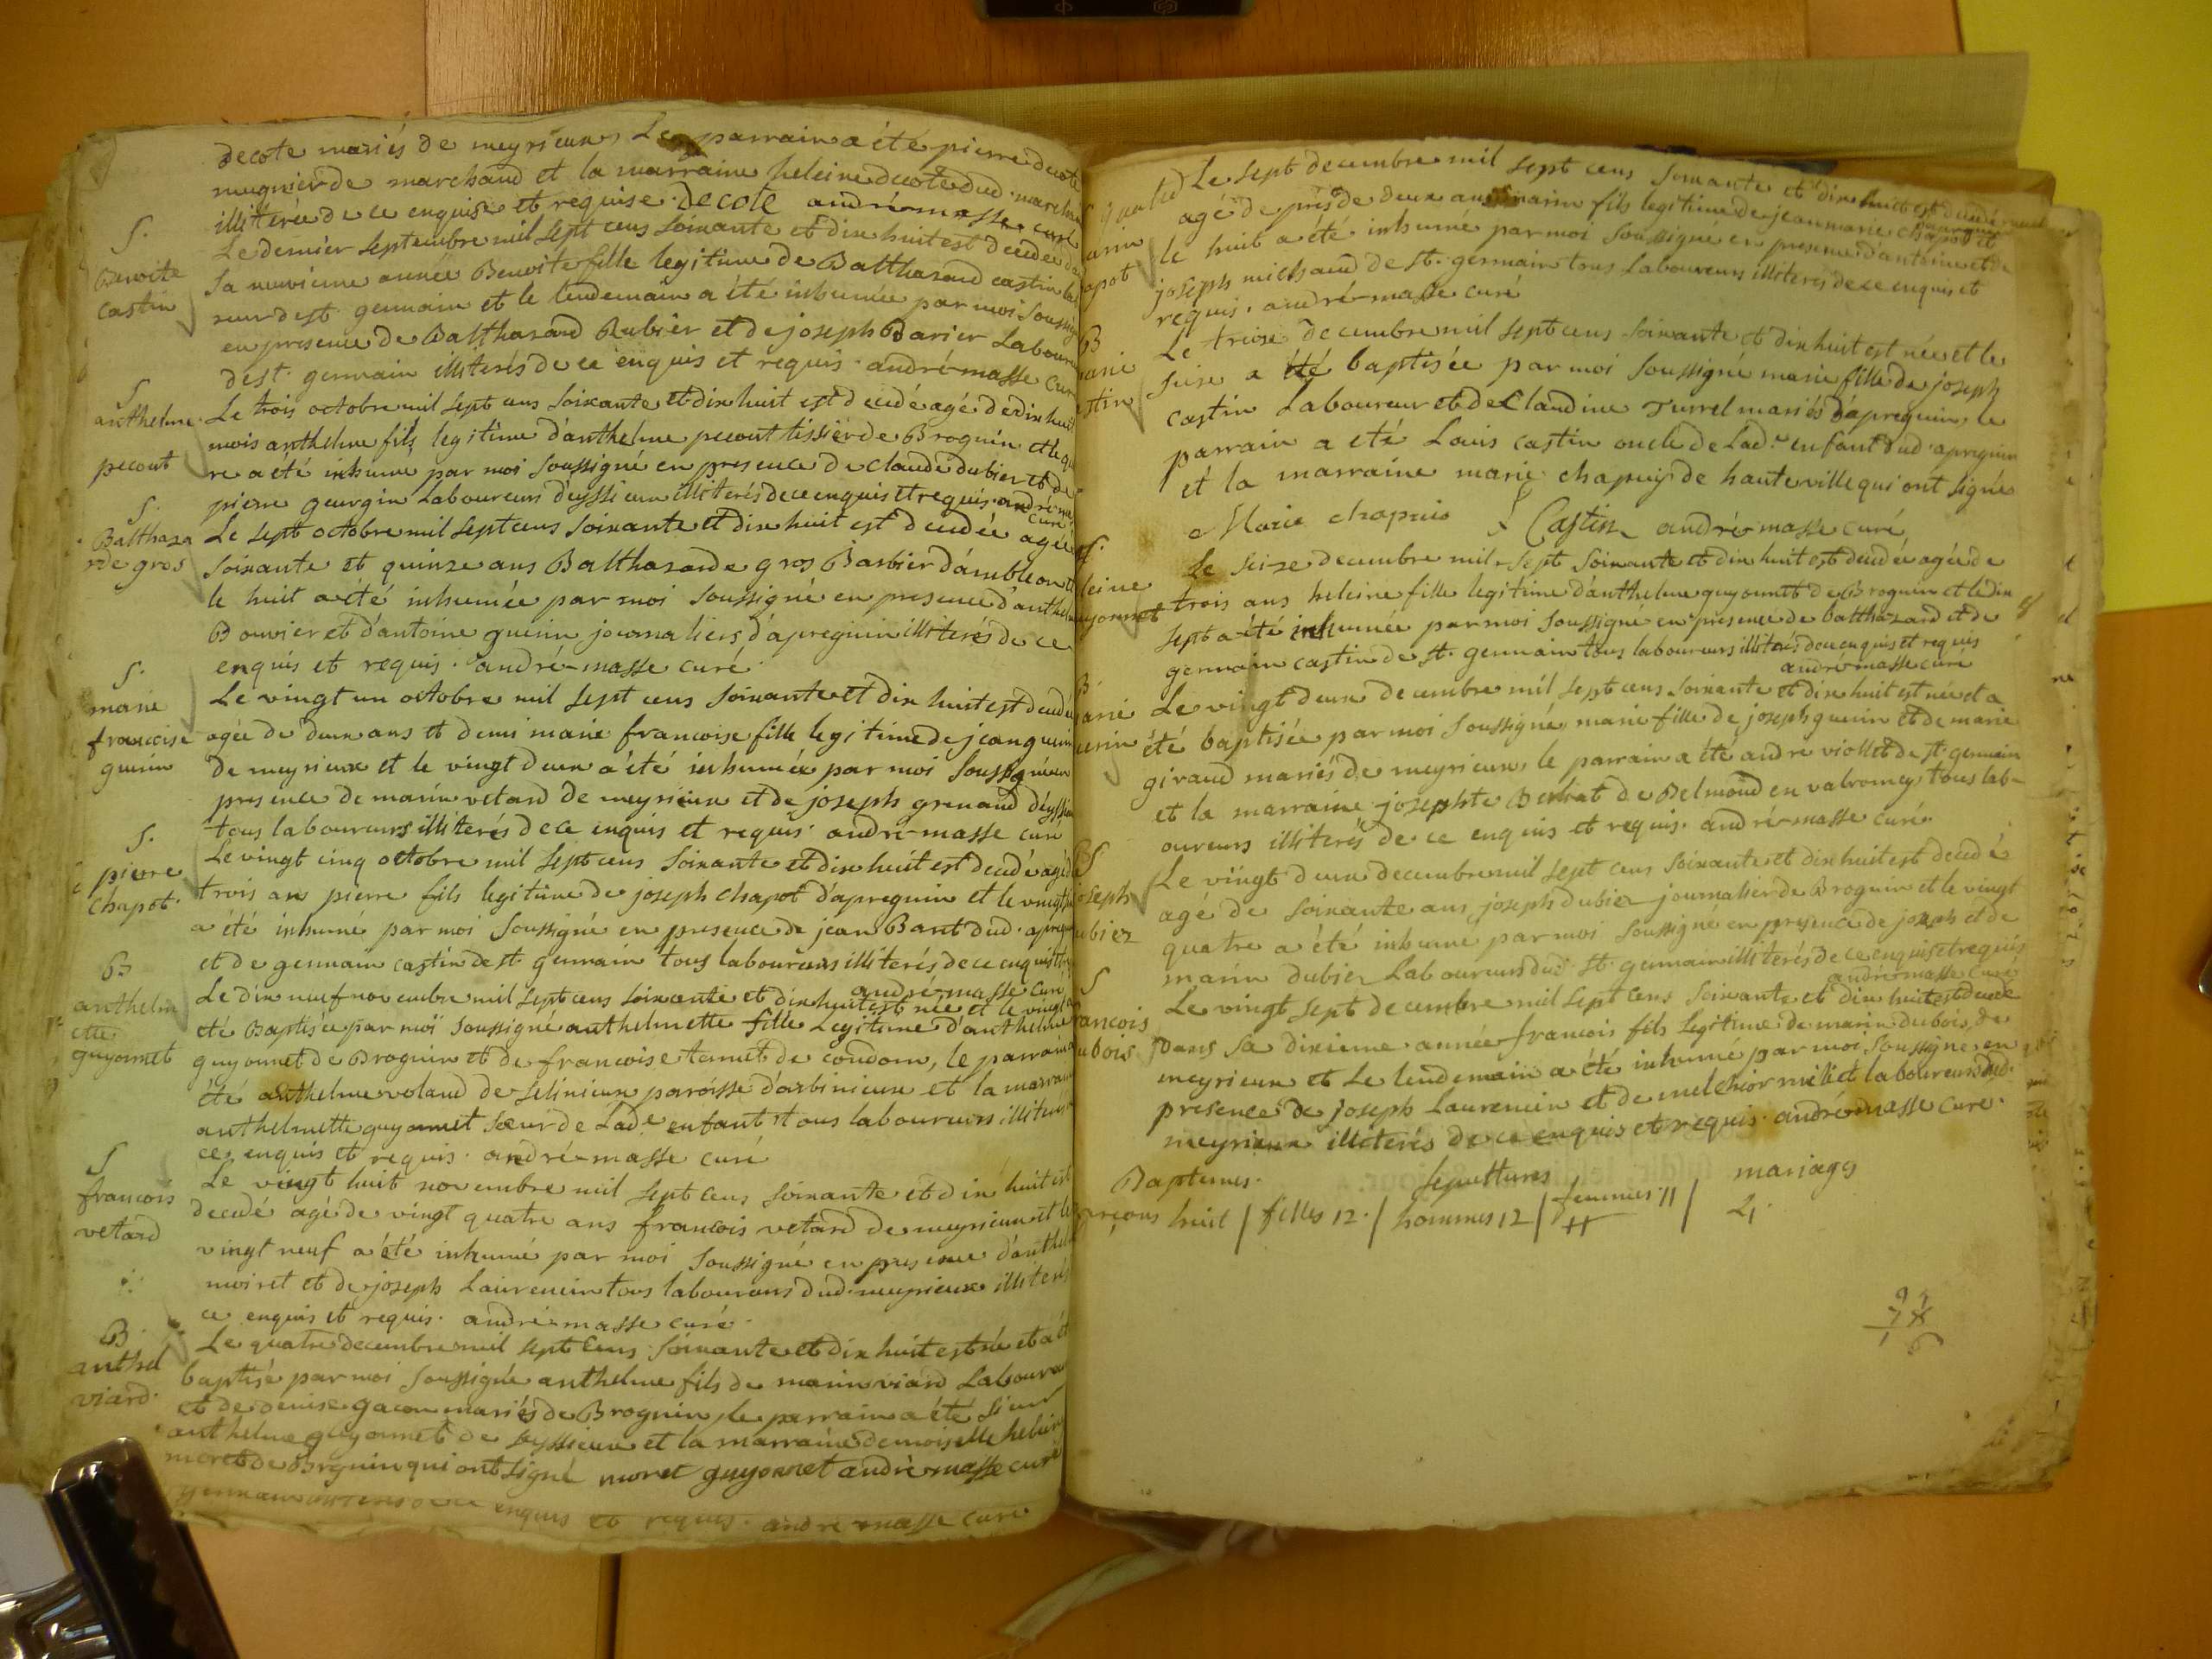 decote mariés de meyrieux Le parrain a été pierre decote
mugnier de marchand et la marraine heleine decote dud. marchand
illiterée de ce enquise et requise. Decote andré-masse curé
S.
Benoite
castin
Le dernier septembre mil sept cens soixante et dix huit est decedée dans
sa neuvieme année Benoite fille legitime de Balthazard castin labou
reur de st. germain et le lendemain a été inhumée par moi soussigné
en presence de Balthazard Rubier et de joseph Barier Laboureurs
de st. germain illiterés de ce enquis et requis. andré-masse curé
S
anthelme
pecout
Le trois octobre mil sept cens soixante et dix huit est decedé agé de dix huit
mois anthelme fils legitime d'anthelme pecout tissier de Brognin et le qua
re a été inhumé par moi soussigné en presence de claude dubier et de
pierre geurgin Laboureurs d'eyssieux illiterés de ce enquis et requis. andré-masse
curé
S.
Balthaza
rde gros
Le sept octobre mil sept cens soixante et dix huit est decedée agée
soixante et quinze ans Balthazarde gros Barbier d'ambleon et
le huit a été inhumée par moi soussigné en presence d'anthelme
Bouvier et d'antoine guerin journaliers d'apregnin illiterés de ce
enquis et requis. andré-masse curé.
S.
marie
francoise
guerin
Le vingt un octobre mil sept cens soixante et dix huit est decedée
agée de deux ans et demi marie francoise fille legitime de jean guerin
de meyrieux et le vingt deux a été inhumée par moi soussigné en
presence de marin vetard de meyrieux et de joseph grenaud d'eyssieux
tous laboureurs illiterés de ce enquis et requis. andré-masse curé
S.
pierre
chapot.
Le vingt cinq octobre mil sept cens soixante et dix huit est decedé agé de
trois ans pierre fils legitime de joseph chapot d'apregnin et le vingt six
a été inhumé par moi soussigné en presence de jean Bant dud. apregnin
et de germain castin de st. germain tous laboureurs illiterés de ce enquis et req
andré-masse curé
B
anthelm
ette
guyonnet
Le dix neuf novembre mil sept cens soixante et dix huit est née et le vingt a
été Baptisée par moi soussigné anthelmette fille Legitime d'anthelme
guyonnet de Brognin et de francoise tenuet de condom, le parrain a
été anthelme voland de Selinieux paroisse d'arbinieux et la marraine
anthelmette guyonnet sœur de Lade. enfant tous laboureurs illiterés de
ce, enquis et requis. andré-masse curé
S
francois
vetard
Le vingt huit novembre mil sept cens soixante et dix huit est
decedé agé de vingt quatre ans francois vetard de meyrieux et le
vingt neuf a été inhumé par moi soussigné en presence d'anthelme
moiret et de joseph Laurencin tous laboureurs dud. meyrieux illiterés
ce enquis et requis. andré-masse curé.
B.
anthel
viard.
Le quatre decembre mil sept cens soixante et dix huit est né et a été
baptisé par moi soussigné anthelme fils de marin viard Laboureur
et de denise gacon mariés de Brognin, le parrain a été sieur
anthelme guyonnet de seyssieux et la marraine demoiselle heleine
moret de Brognin qui ont signé moret guyonnet andré-masse curé
germain illiterés de ce enquis et requis. andré masse curé
arin
apot
Le sept decembre mil sept cens soixante et dix huit est decedé
agé de près de deux ans marin fils legitime de jeanmarie chapot et
le huit a été inhumé par moi soussigné en presence d'antoine et de
joseph michaud de st. germain tous Laboureurs illiterés de ce enquis et
requis. andré-masse curé
B
marie
castin
Le treize decembre mil sept cens soixante et dix huit est née et le
seize a été baptisée par moi soussigné marie fille de joseph
castin Laboureur et de Claudine Turrel mariés d'apregnin, le
parrain a eté Louis castin oncle de Lade. enfant dud. apregnin
et la marraine marie chapuy de hauteville qui ont signé
Marie chapuis Castin andré-masse curé
S.
leine
uyonnet
Le seize decembre mil sept soixante et dix huit est decedée agée de
trois ans heleine fille legitime d'anthelme guyonnet de Brognin et le dix
sept a été inhumée par moi soussigné en presence de balthazard et de
germain castin de st. germain tous laboureurs illiterés de ce enquis et requis
andré-masse curé
B
marie
uerin
Le vingt deux decembre mil sept cens soixante et dix huit est née et a
été baptisée par moi soussigné marie fille de joseph guerin et de marie
giraud mariés de meyrieux, le parrain a été andre viollet de st. germain
et la marraine josephte Berlat de Belmond en valromey, tous lab-
oureurs illiterés de ce enquis et requis. andré-masse curé.
S
joseph
ubier
Le vingt deux decembre mil sept cens soixante et dix huit est decedé
agé de soixante ans joseph dubier journalier de Brognin et le vingt
quatre a été inhumé par moi soussigné en presence de joseph et de
marin dubier Laboureurs dud. st. germain illiterés de ce enquis et requis
andré-masse curé
S
rancois
ubois
Le vingt sept decembre mil sept cens soixante et dix huit est decedé
dans sa dixieme année francois fils legitime de marin dubois, de
meyrieux et Le lendemain a été inhumé par moi soussigné en
presence de joseph Laurencin et de melchior millet laboureurs dud.
meyrieux illiterés de ce enquis et requis. andré-masse curé.
Baptemes. sepultures mariages
garçons huit / filles 12. / hommes 12 / femmes 11 / 2.
11